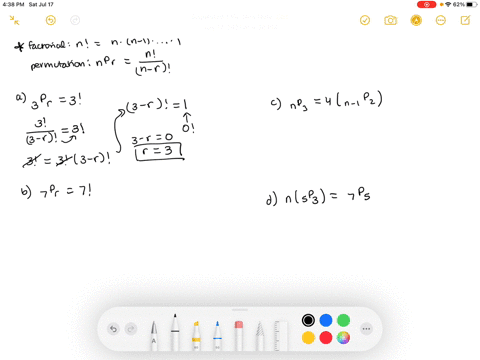 4:38 PM Sat Jul 17
62%
* factorial: n! = n·(n-1)·...·1
permutation: nPr = n!/(n-r)!
a) 3Pr = 3!
3!/(3-r)! = 3!
3! = 3!(3-r)!
(3-r)! = 1
0!
3-r = 0
r = 3
b) 7Pr = 7!
c) nP3 = 4(n-1P2)
d) n(5P3) = 7P5
A